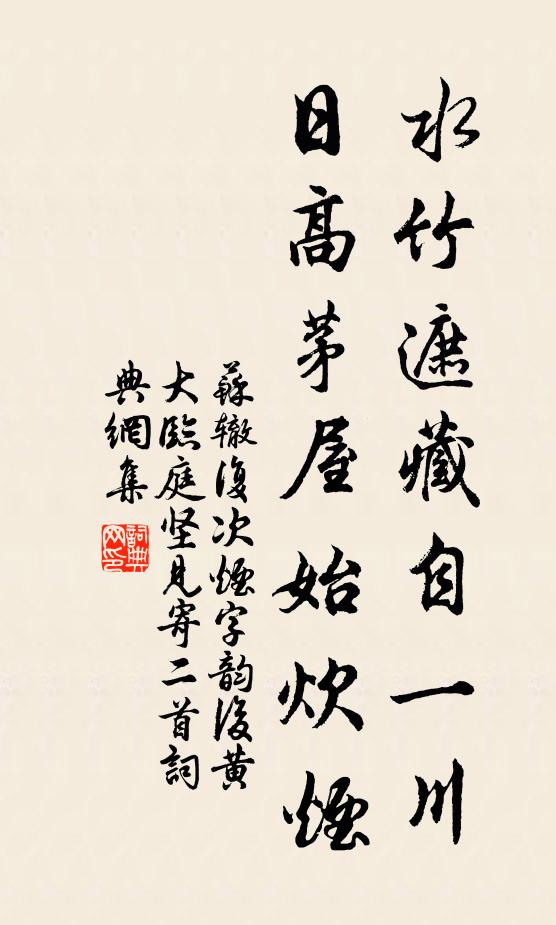 水竹遮藏自一川
日高茅屋始炊煙
蘇轍復次煙字韵復黄
大臨庭坚見寄二首詞
典網集
詞典
网印